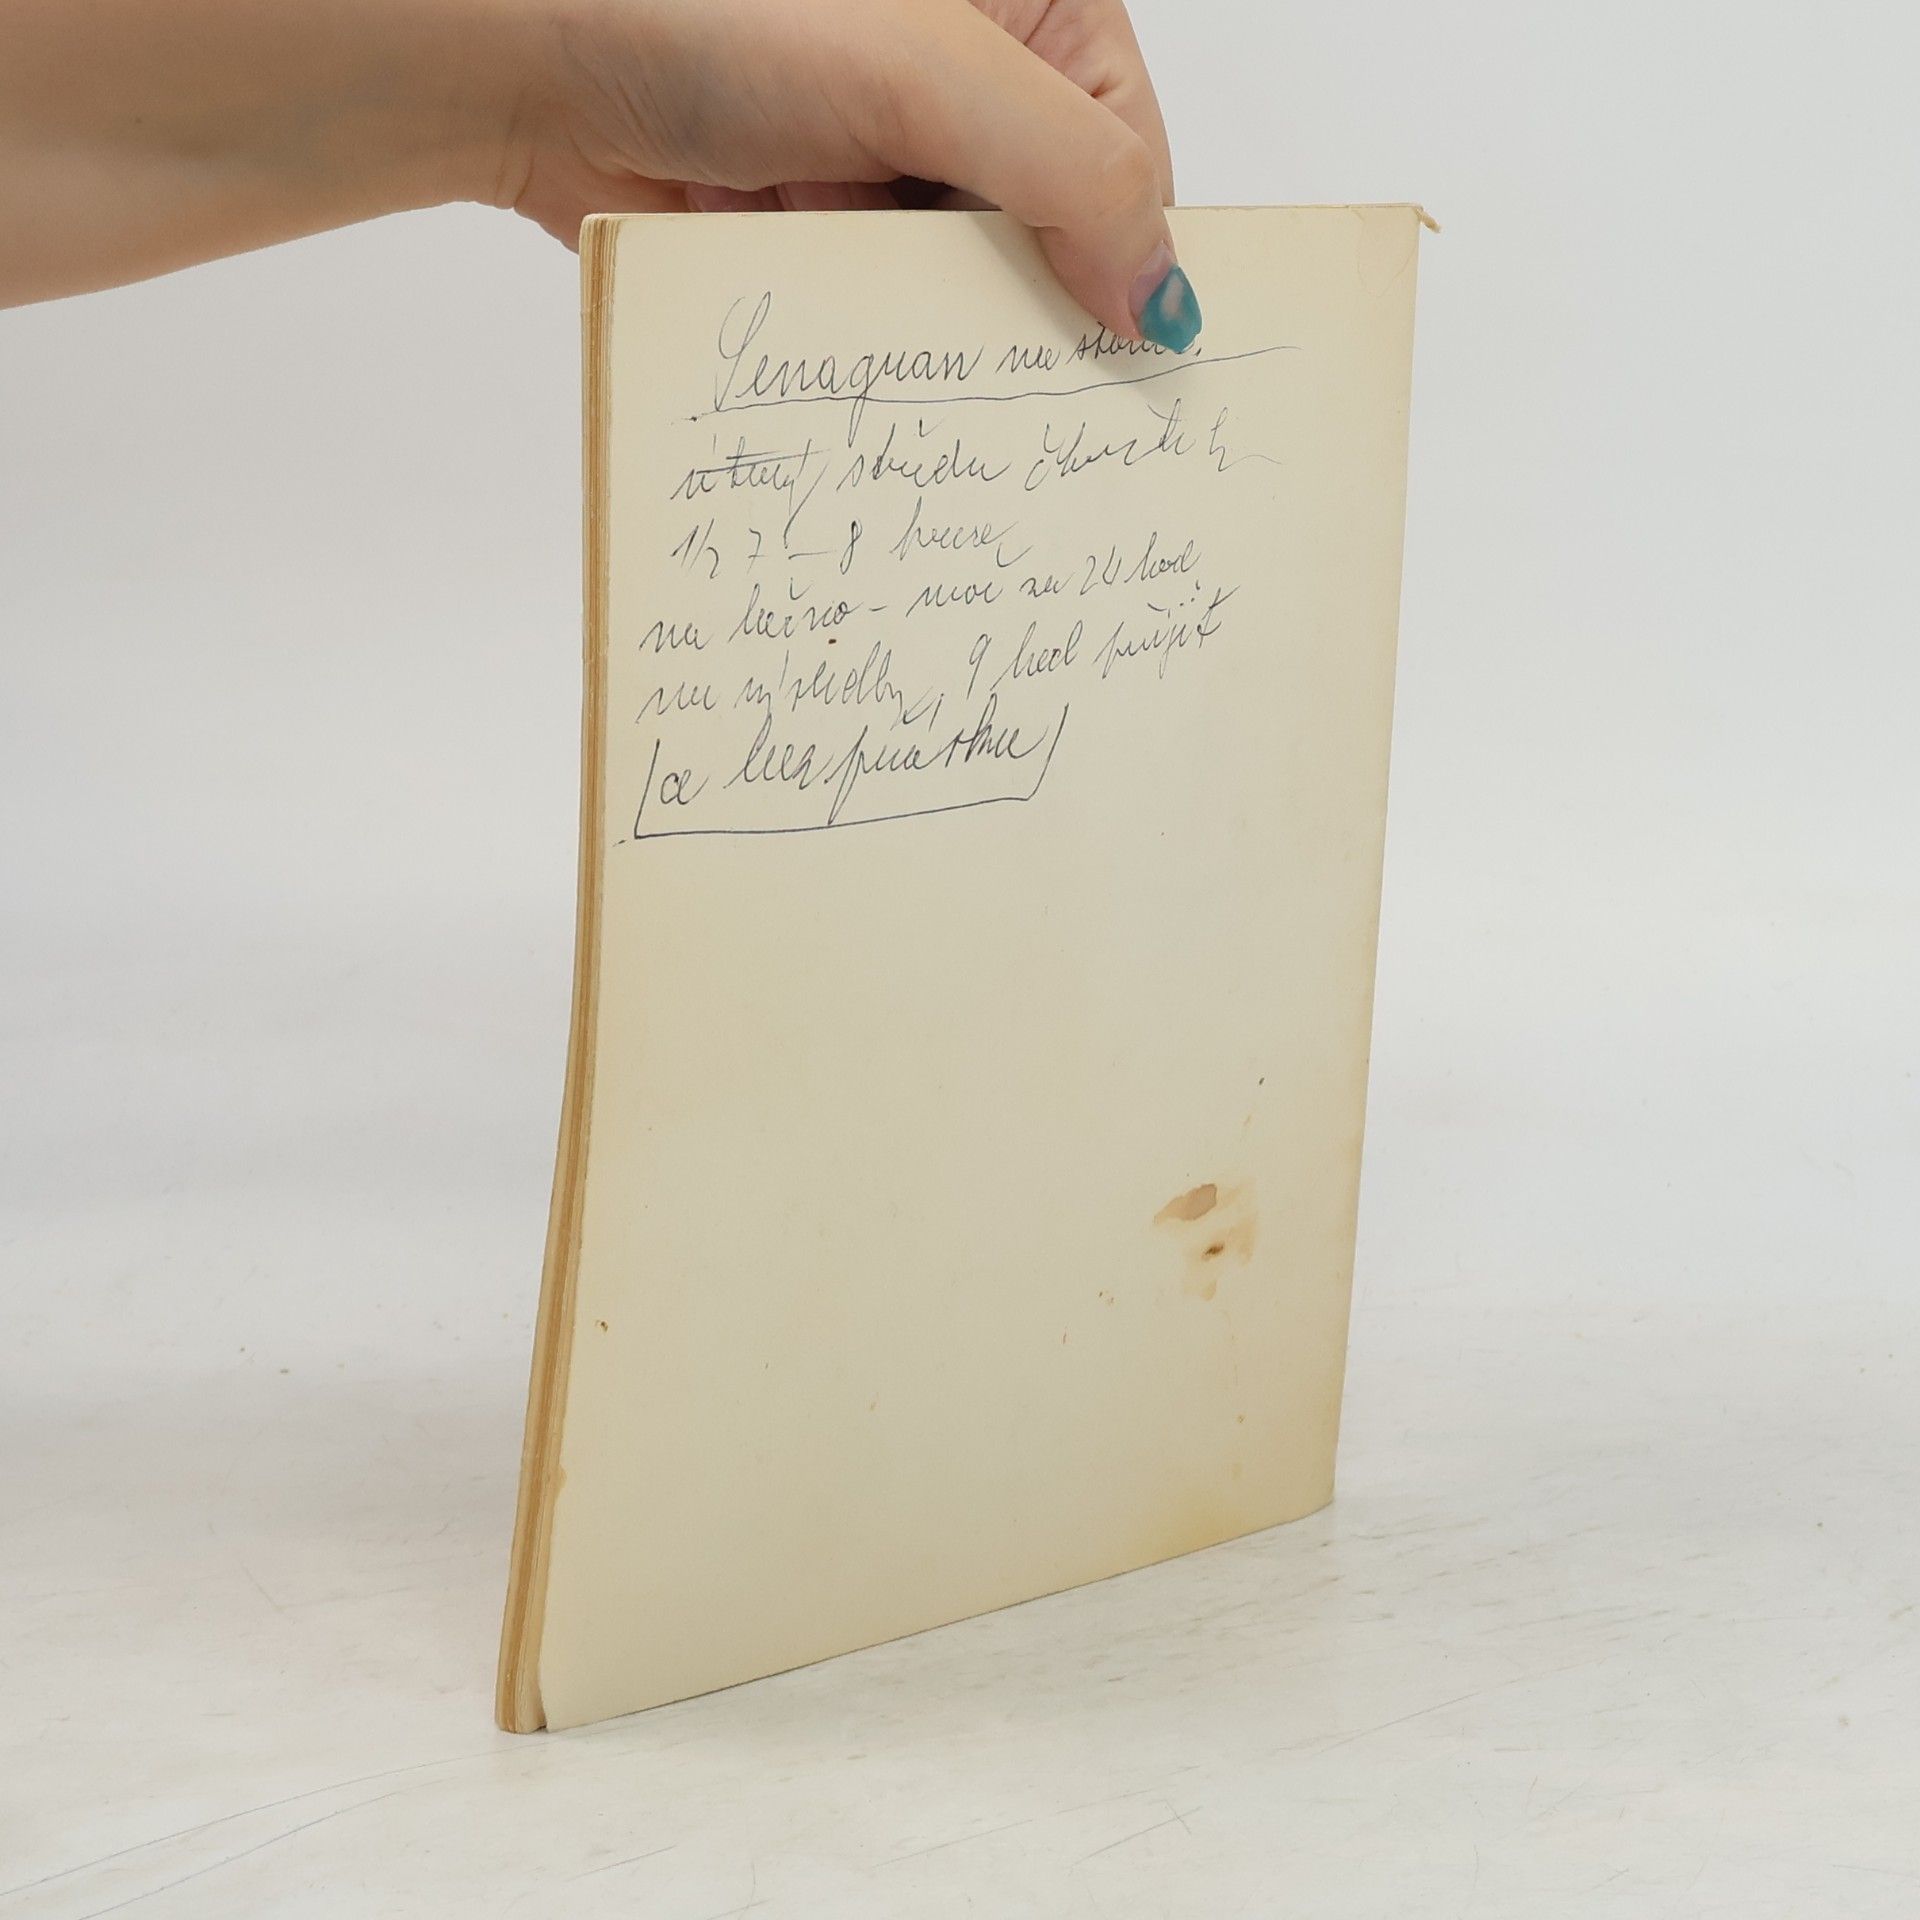 Senagran na stolici.
úterý středu čtvrtek
1/2 7 – 8 hruse
na lačno – moč za 24 hod
na výsledky, 9 hod přijít
(a bez prášku)